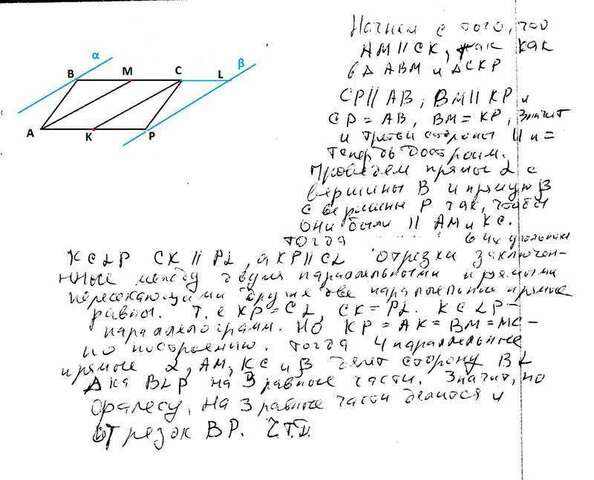 α
B M C L β
A K P
Начнем с того, что
AM || CK, так как
в Δ ABM и ΔCKP
CP || AB, BM || KP и
CP = AB, BM = KP, значит
и третьи стороны || и =
Теперь достроим.
Проведем прямые α с
вершины B и прямую β
с вершины P так, чтобы
они были || AM и KC.
тогда в 4х угольнике
KCLP CK || PL, а KP || CL отрезки заключен-
ные между двумя параллельными прямыми
пересекающими другие две параллельные прямые
равны. Т.е KP = CL, CK = PL. KCLP-
параллелограмм. Но KP = AK = BM = MC-
по построению. Тогда 4 параллельные
прямые α, AM, KC и β делят сторону BL
Δ ка BLP на 3 равные части. Значит, по
Фалесу, на 3 равные части делится и
отрезок BP. Ч.Т.Д.